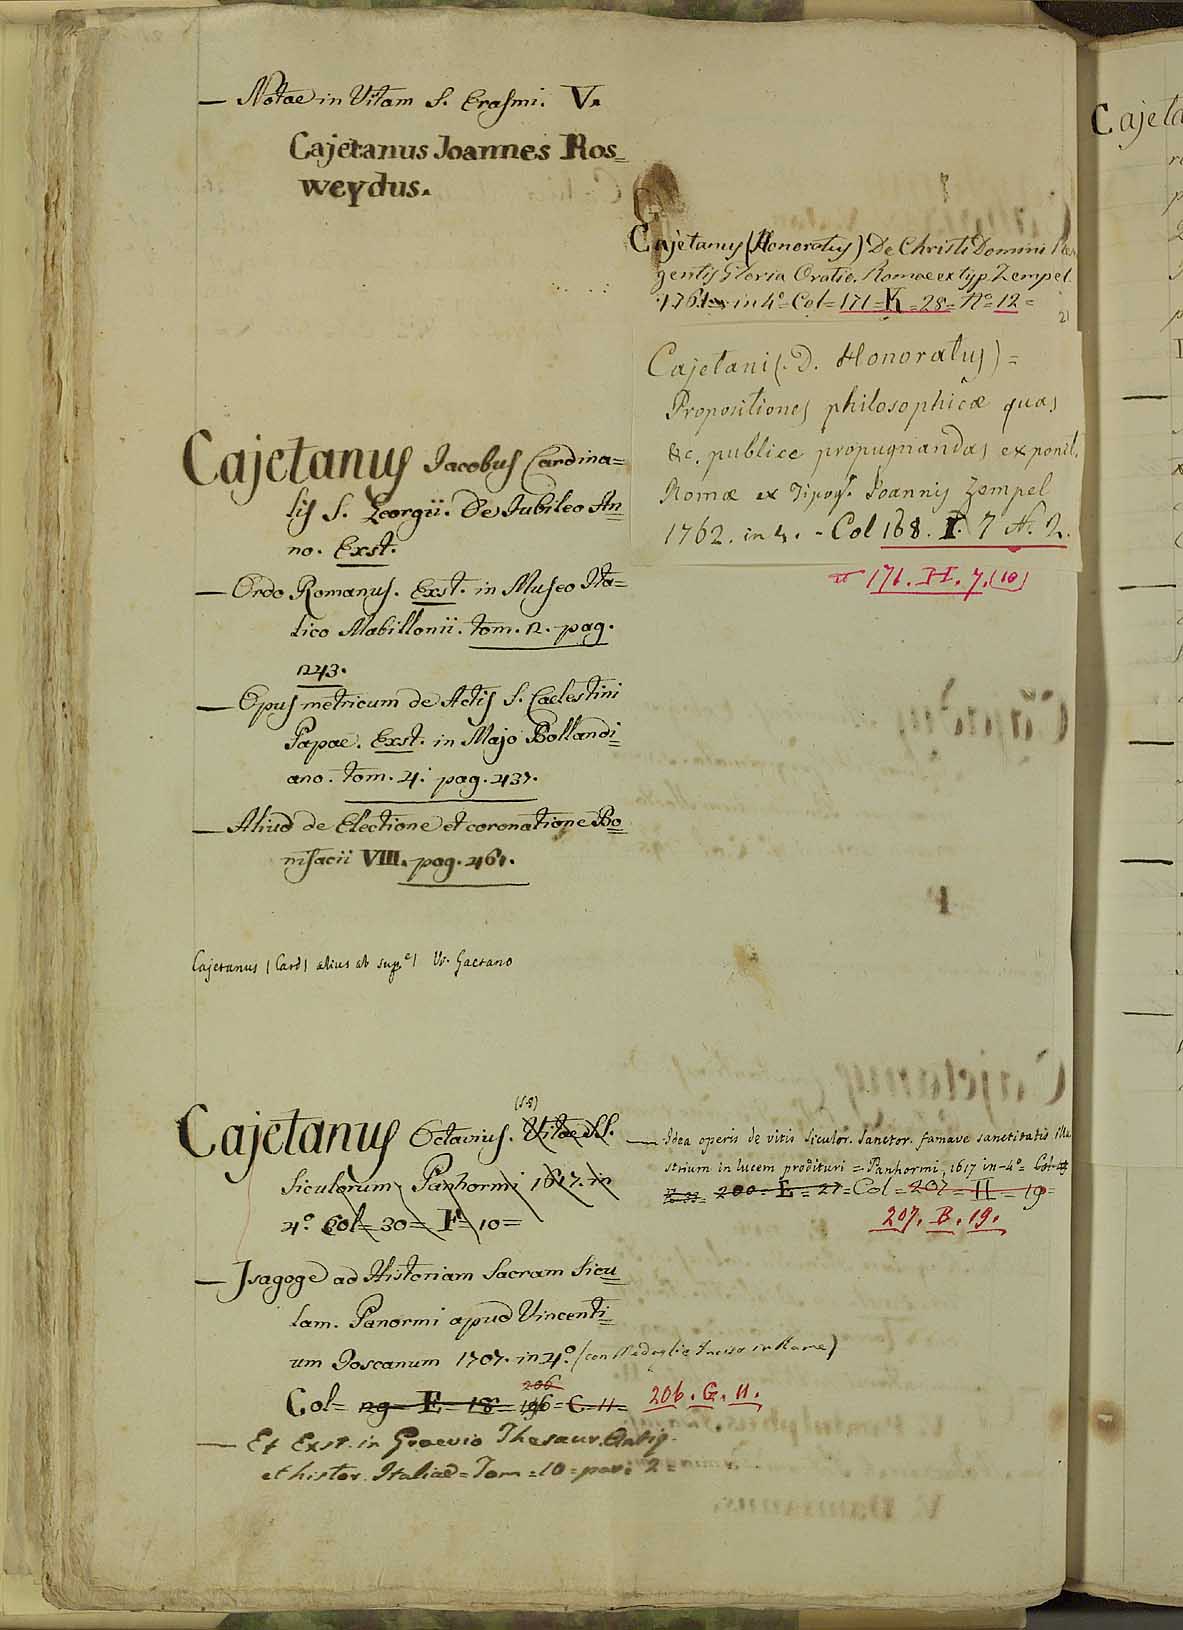 — Notae in Vitam S. Erasmi. V.
Cajetanus Joannes Ros_
weydus.
Cajetanus Jacobus Cardina=
lis S. Georgii. De Jubileo An=
no. Exst.
— Ordo Romanus. Exst. in Museo Ita=
lico Mabillonii. tom. 2. pag.
243.
— Opus metricum de Actis S. Caelestini
Papae. Exst. in Majo Bollandi=
ano. tom. 4. pag. 437.
— Aliud de Electione et coronatione Bo=
nifacii VIII. pag. 461.
Cajetanus (Card) alius ab sup.e) V. Gaetano
Cajetanus Octavius. Vitae SS.
Siculorum Panhormi 1617. in
4.o Col= 30= F= 10=
— Isagoge ad Historiam Sacram Sicu=
lam. Panormi apud Vincenti=
um Toscanum 1707. in 4.o (con Medaglie Incise in Rame)
Col= 29= E= 18= 206 196= C= 11= 206. G. 11.
— Et Exst. in Graevio Thesaur. Antiq.
et histor. Italiae= Tom= 10= par: 2=
Cajetanus (Honoratus) De Christi Domini
gentis Gloria Oratio. Romae ex typ. Zempel.
1761. in 4o= Col= 171= K= 28= No= 12=
21
Cajetani (. D. Honoratus)=
Propositiones philosophicae quas
&c. publice propugnandas exponit.
Romae ex Tipog. Joannis Zempel
1762. in 4. - Col 168. I. 7 N. 2.
171. H. 7. (10)
— Idea operis de vitis Siculor. Sanctor. famave sanctitatis illu
strium in lucem prodituri= Panhormi, 1617 in-4o= Col=
200= E= 27= Col= 207= H= 19=
207. B. 19.
Cajeta